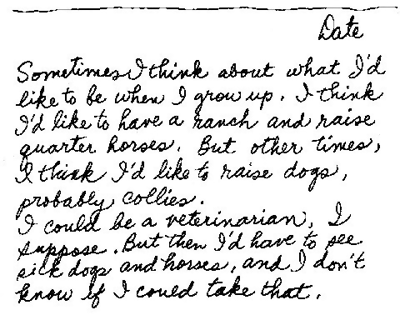 Date
Sometimes I think about what I'd
like to be when I grow up. I think
I'd like to have a ranch and raise
quarter horses. But other times,
I think I'd like to raise dogs,
probably collies.
I could be a veterinarian, I
suppose. But then I'd have to see
sick dogs and horses, and I don't
know if I could take that.